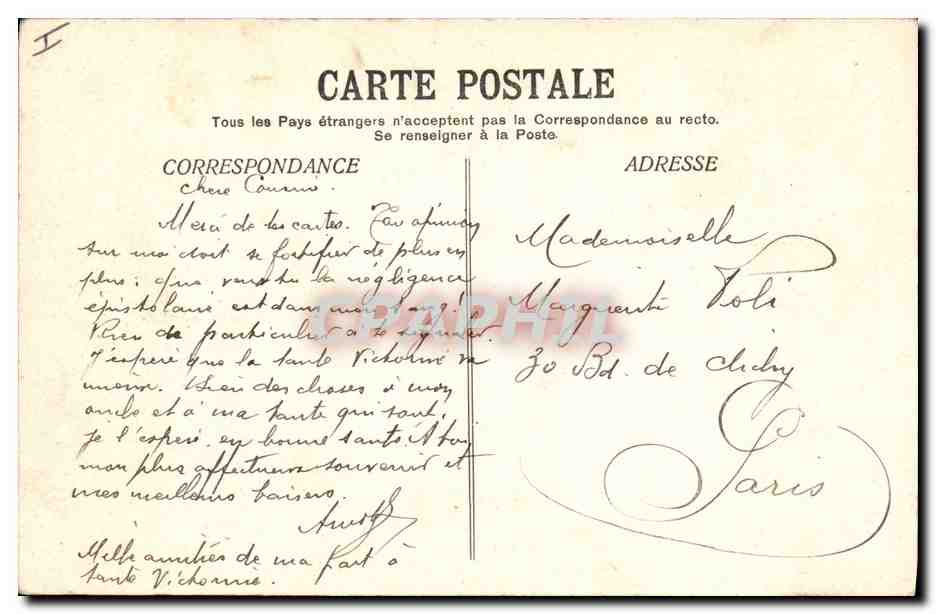 I
CARTE POSTALE
Tous les Pays étrangers n'acceptent pas la Correspondance au recto.
Se renseigner à la Poste.
CORRESPONDANCE
Chere Cousine.
Merci de tes cartes. Ton opinion
sur moi doit se fortifier de plus en
plus; que veux tu la négligence
épistolaire est dans mon sang!
Rien de particulier à te signaler.
J'espère que la tante Victorine va
mieux. Bien des choses à mon
oncle et à ma tante qui sont,
je l'espère, en bonne santé. A toi
mon plus affectueux souvenir et
mes meilleurs baisers.
Mille amitiés de ma part à
tante Victorine.
ADRESSE
Mademoiselle
Marguerite Poli
30 Bd. de Clichy
Paris
CPAPHIL